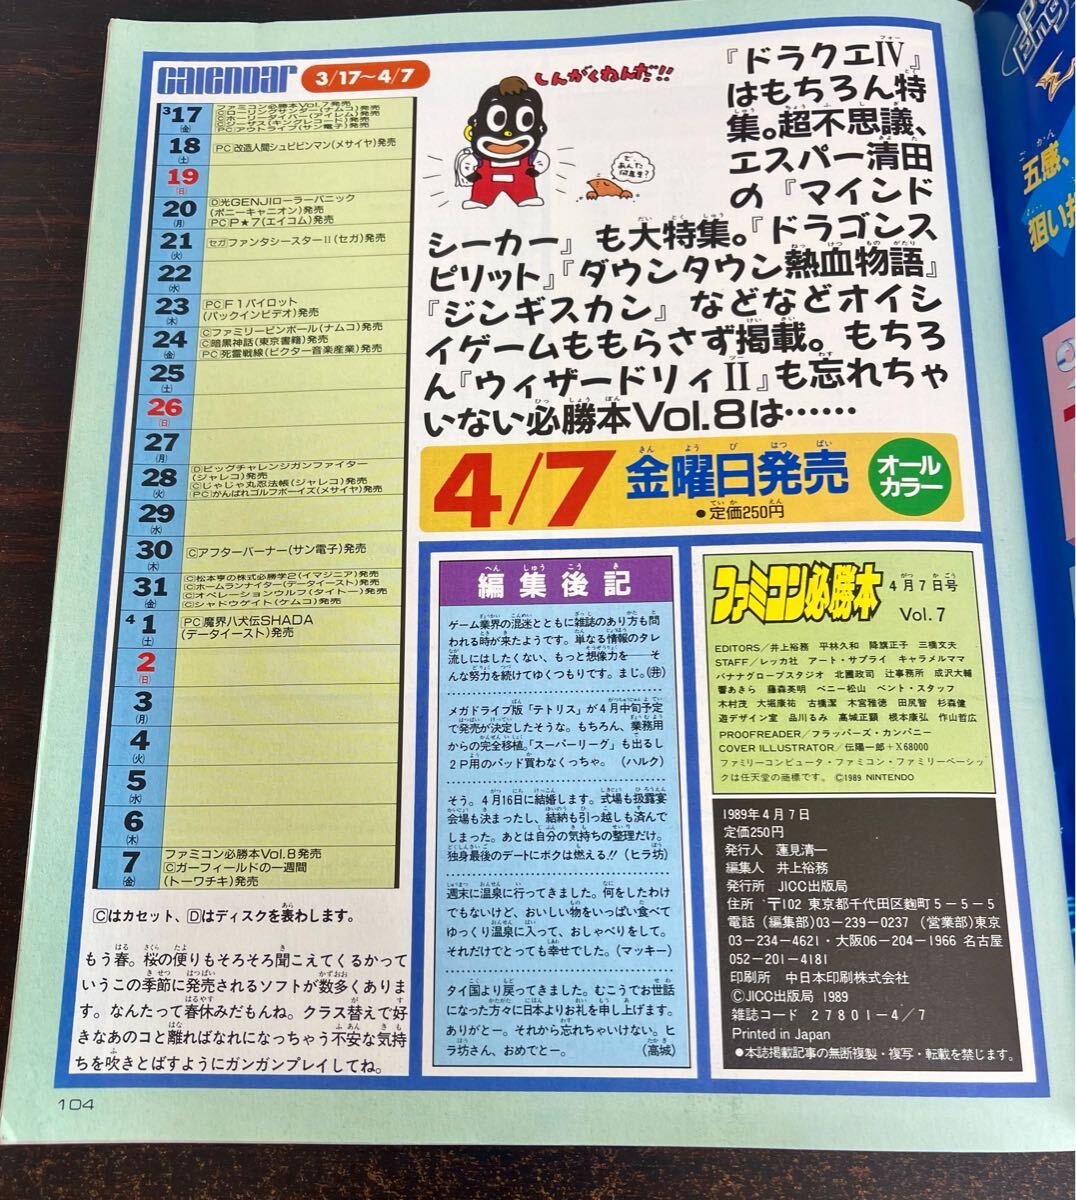 Calendar 3/17~4/7
3
17(金)
ファミコン必勝本Vol.7発売
Ⓒローリングサンダー(ナムコ)発売
Ⓒホーリーダイバー(アイレム)発売
PC アウトライブ(サン電子)発売
18(土)
PC 改造人間シュビビンマン(メサイヤ)発売
19(日)
20(月)
D 光GENJIローラーパニック
(ポニーキャニオン)発売
PC P★7(エイコム)発売
21(火)
セガ ファンタシースターII(セガ)発売
22(水)
23(木)
PC F1パイロット
(パックインビデオ)発売
24(金)
C ファミリーピンボール(ナムコ)発売
C 暗黒神話(東京書籍)発売
PC 死霊戦線(ビクター音楽産業)発売
25(土)
26(日)
27(月)
28(火)
D ビッグチャレンジガンファイター
(ジャレコ)発売
C じゃじゃ丸忍法帳(ジャレコ)発売
PC がんばれゴルフボーイズ(メサイヤ)発売
29(水)
30(木)
C アフターバーナー(サン電子)発売
31(金)
C 松本亨の株式必勝学2(イマジニア)発売
C ホームランナイター(データイースト)発売
C オペレーションウルフ(タイトー)発売
C シャドウゲイト(ケムコ)発売
4
1(土)
PC 魔界八犬伝SHADA
(データイースト)発売
2(日)
3(月)
4(火)
5(水)
6(木)
7(金)
ファミコン必勝本Vol.8発売
C ガーフィールドの一週間
(トーワチキ)発売
Cはカセット、Dはディスクを表わします。
もう春。桜の便りもそろそろ聞こえてくるかって
いうこの季節に発売されるソフトが数多くありま
す。なんたって春休みだもんね。クラス替えで好
きなあのコと離ればなれになっちゃう不安な気持
ちを吹きとばすようにガンガンプレイしてね。
104
しんがくねんだ!!
で、
あんた
何年生?
『ドラクエIV』
はもちろん特
集。超不思議、
エスパー清田
の『マインド
シーカー』も大特集。『ドラゴンス
ピリット』『ダウンタウン熱血物語』
『ジンギスカン』などなどオイシ
イゲームももらさず掲載。もちろ
ん『ウィザードリィII』も忘れちゃ
いない必勝本Vol.8は……
4/7 金曜日発売
●定価250円
オール
カラー
編集後記
ゲーム業界の混迷とともに雑誌のあり方も問
われる時が来たようです。単なる情報のタレ
流しにはしたくない、もっと想像力を——そ
んな努力を続けてゆくつもりです。まじ。(井)
メガドライブ版「テトリス」が4月中旬予定
で発売が決定したそうな。もちろん、業務用
からの完全移植。「スーパーリーグ」も出るし
2P用のパッド買わなくっちゃ。(ハルク)
そう。4月16日に結婚します。式場も披露宴
会場も決まったし、結納も引っ越しも済んで
しまった。あとは自分の気持ちの整理だけ。
独身最後のデートにボクは燃える!!(ヒラ坊)
週末に温泉に行ってきました。何をしたわけ
でもないけど、おいしい物をいっぱい食べて
ゆっくり温泉に入って、おしゃべりをして。
それだけでとっても幸せでした。(マッキー)
タイ国より戻ってきました。むこうでお世話
になった方々に日本よりお礼を申し上げます。
ありがとー。それから忘れちゃいけない。ヒ
ラ坊さん、おめでとー。(高城)
ファミコン必勝本
4月7日号
Vol.7
EDITORS/井上裕務 平林久和 降旗正子 三橋文夫
STAFF/レッカ社 アート・サプライ キャラメルママ
バナナグローブスタジオ 北園政司 辻事務所 成沢大輔
響あきら 藤森英明 ベニー松山 ベント・スタッフ
木村茂 大堀康祐 古橋潔 木宮雅徳 田尻智 杉森健
遊デザイン室 品川るみ 高城正顕 根本康弘 作山哲広
PROOFREADER/フラッパーズ・カンパニー
COVER ILLUSTRATOR/伝陽一郎+X68000
ファミリーコンピュータ・ファミコン・ファミリーベーシッ
クは任天堂の商標です。©1989 NINTENDO
1989年4月7日
定価250円
発行人 蓮見清一
編集人 井上裕務
発行所 JICC出版局
住所 〒102 東京都千代田区麹町5-5-5
電話(編集部)03-239-0237(営業部)東京
03-234-4621・大阪06-204-1966 名古屋
052-201-4181
印刷所 中日本印刷株式会社
©JICC出版局 1989
雑誌コード 27801-4/7
Printed in Japan
●本誌掲載記事の無断複製・複写・転載を禁じます。
五感、
狙い